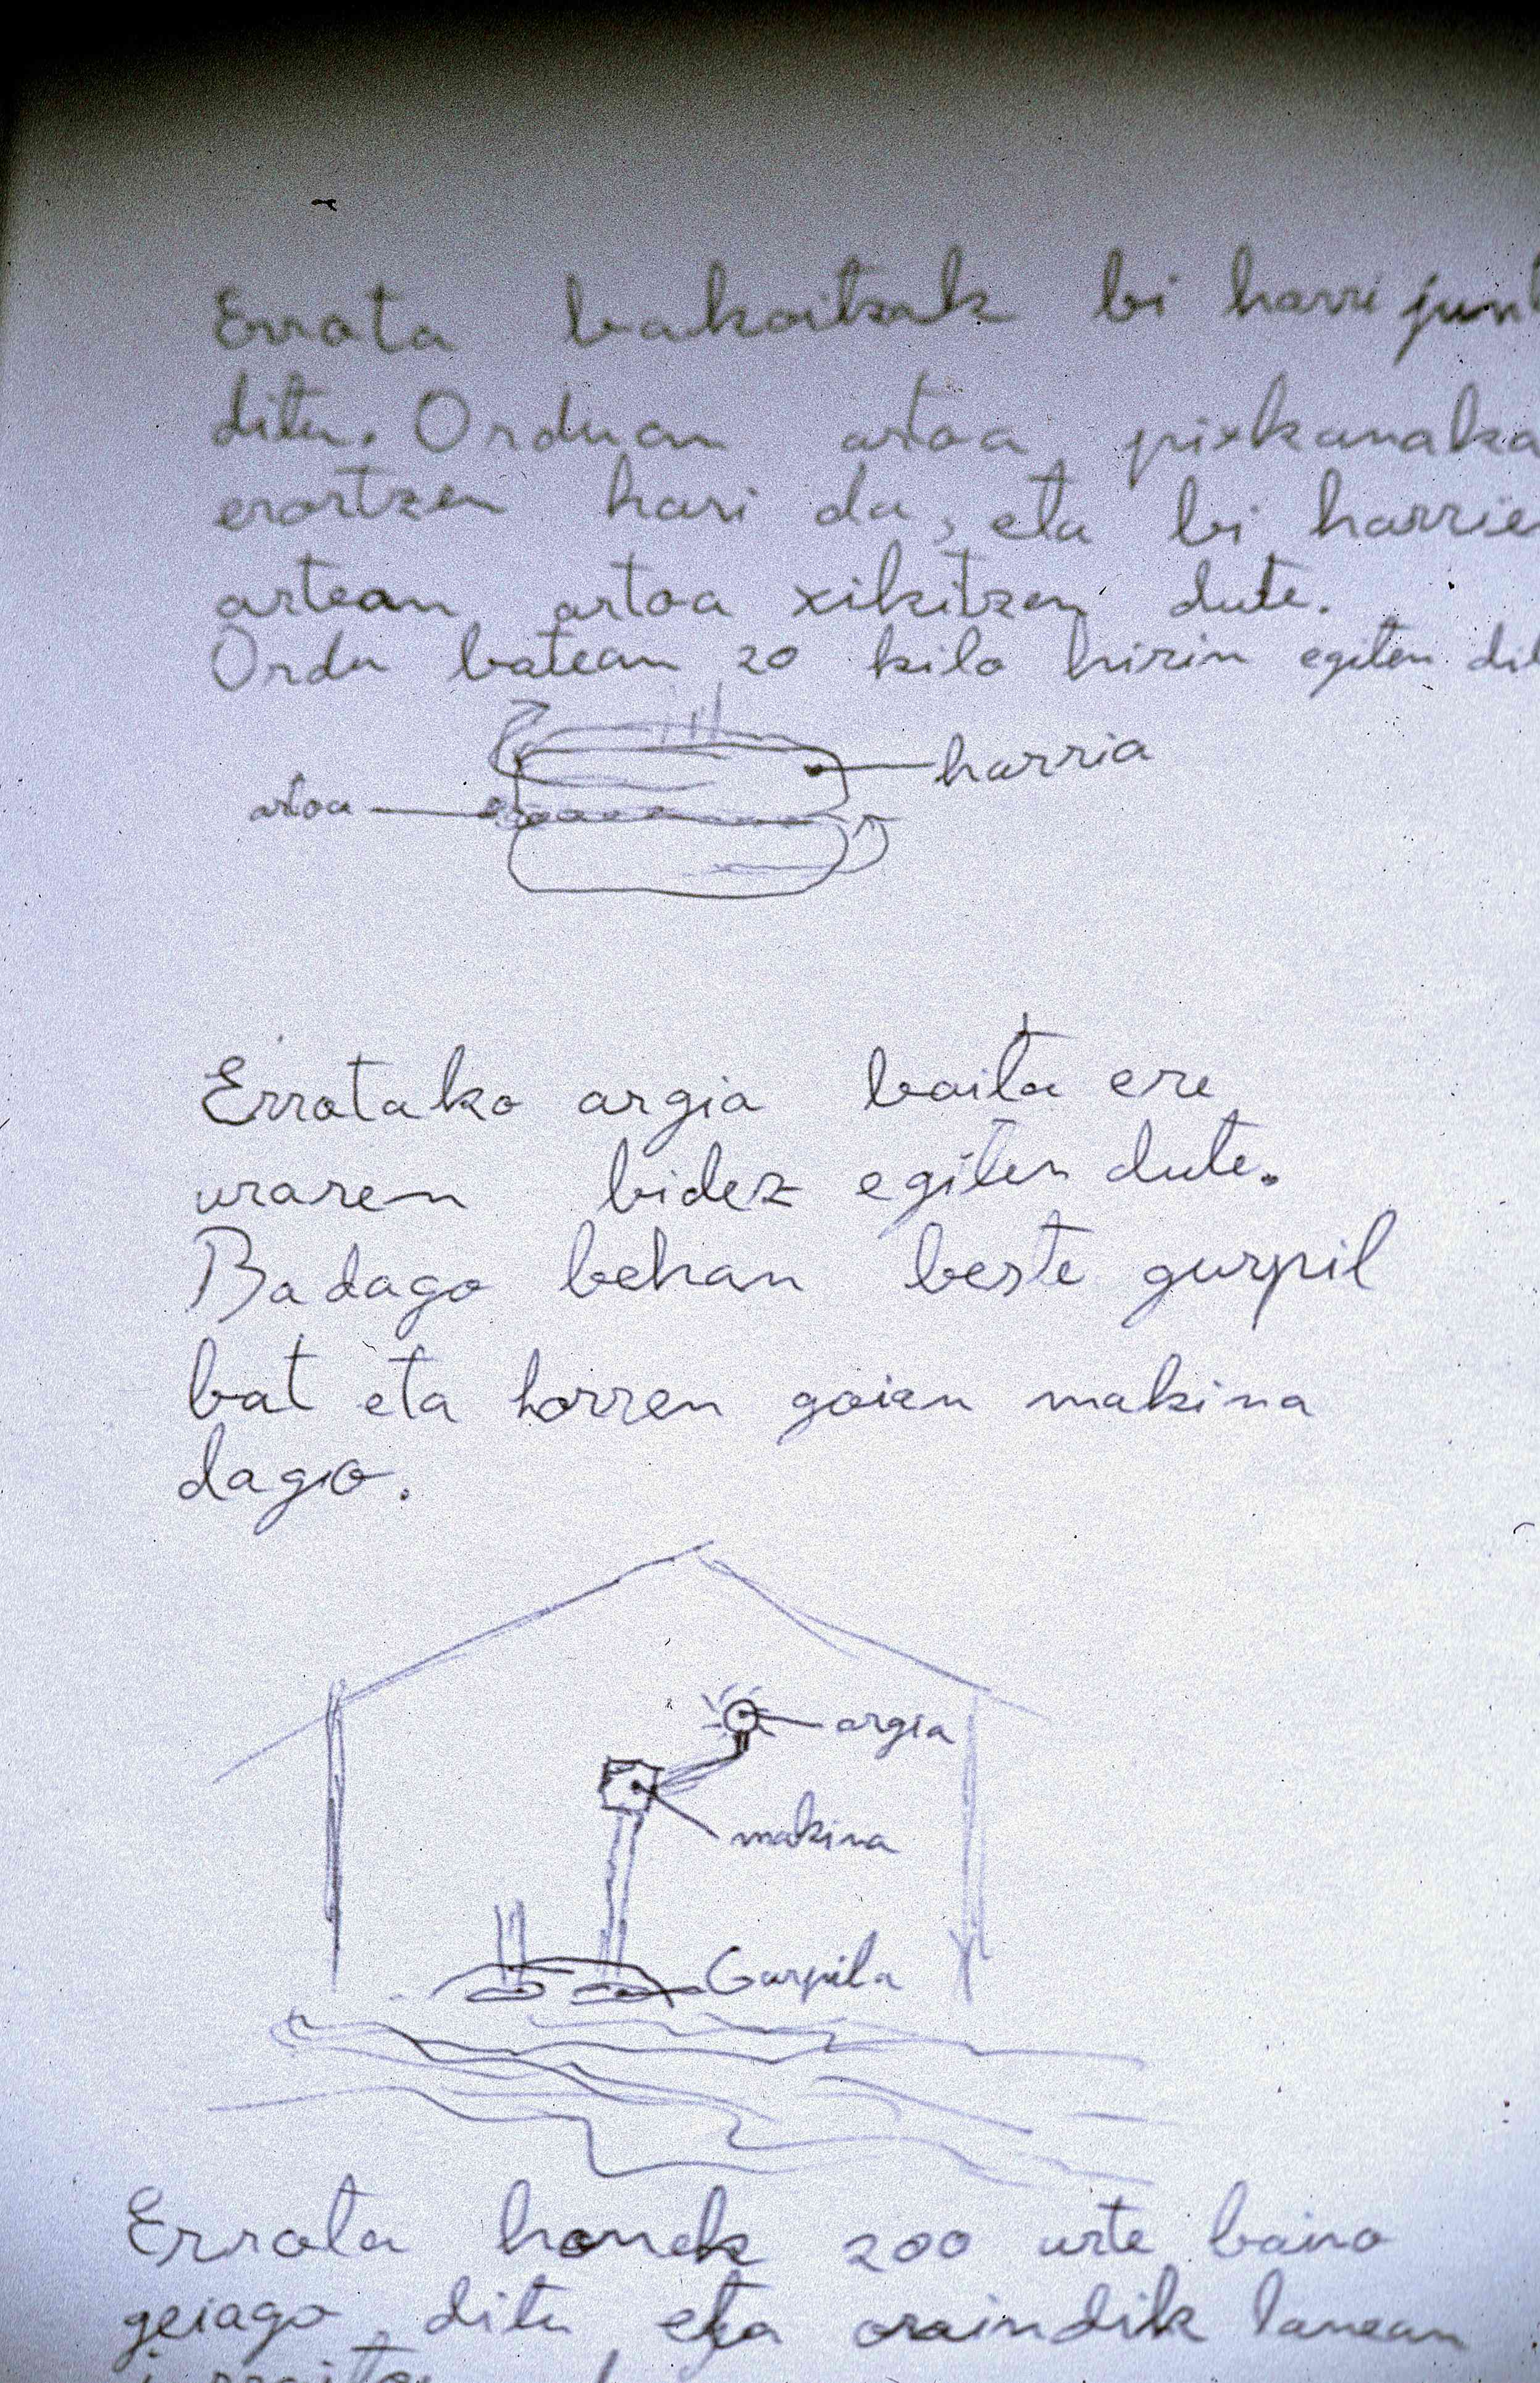 Errota bakoitzak bi harri jun
ditu. Orduan artoa pixkanaka
erortzen hari da, eta bi harrie
artean artoa xikitzen dute.
Ordu batean 20 kilo hirin egiten dit
harria
artoa
Errotako argia baita ere
uraren bidez egiten dute.
Badago behan beste gurpil
bat eta horren goien makina
dago.
argia
makina
Gurpila
Errota honek 200 urte baino
geiago ditu eta oraindik lanean